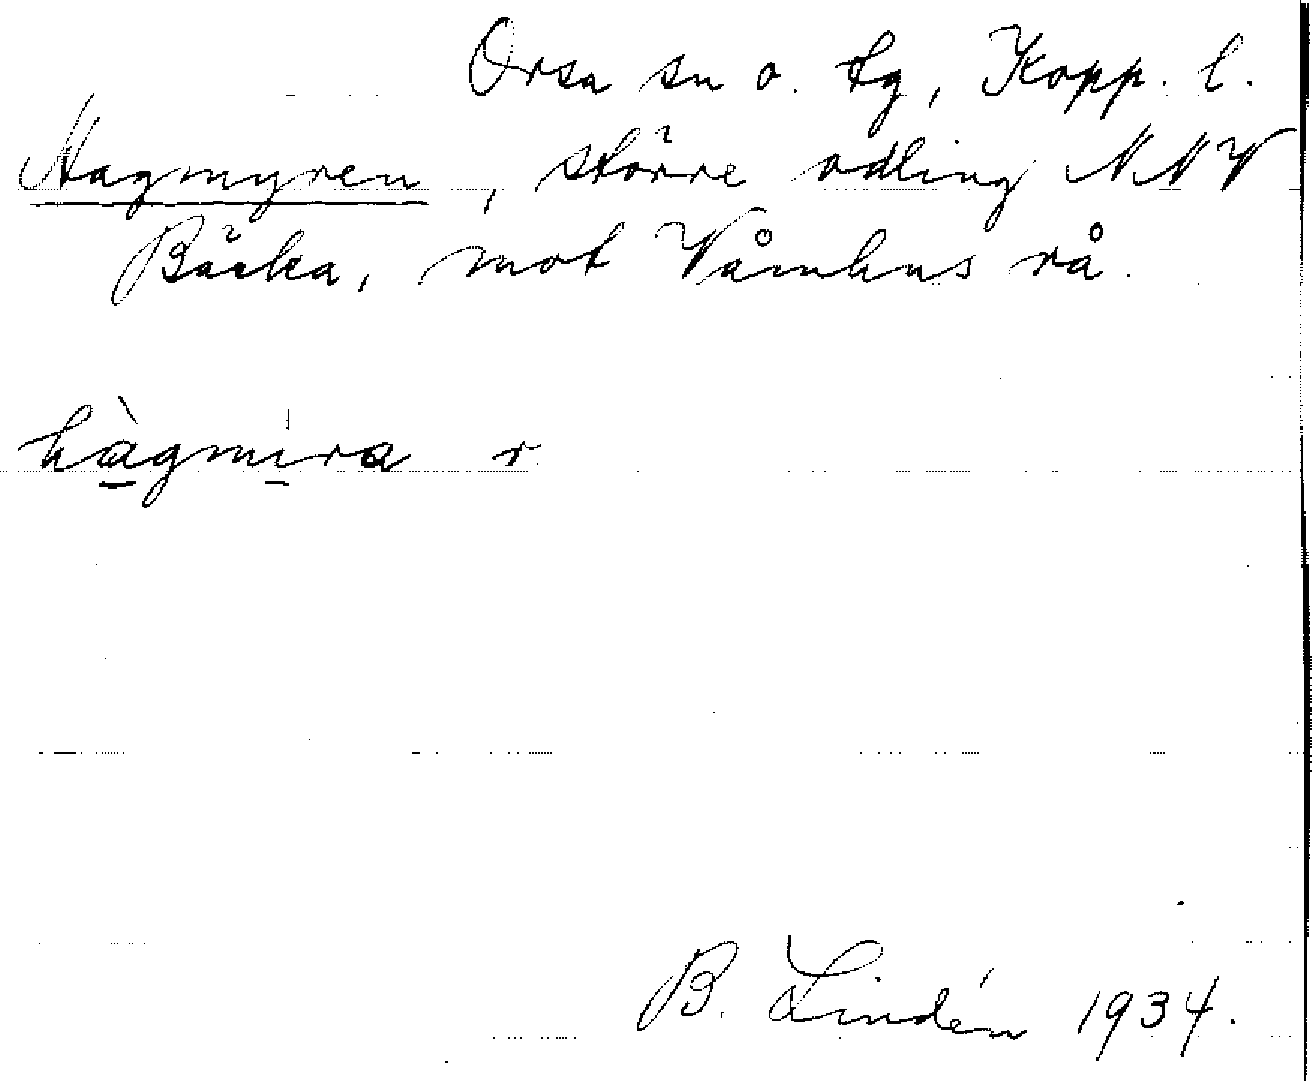 Orsa sn o. tg, Kopp. l.
Hagmyren, större odling NNV
Bäcka, mot Våmhus rå.
hàgmira r
B. Lindén 1934.